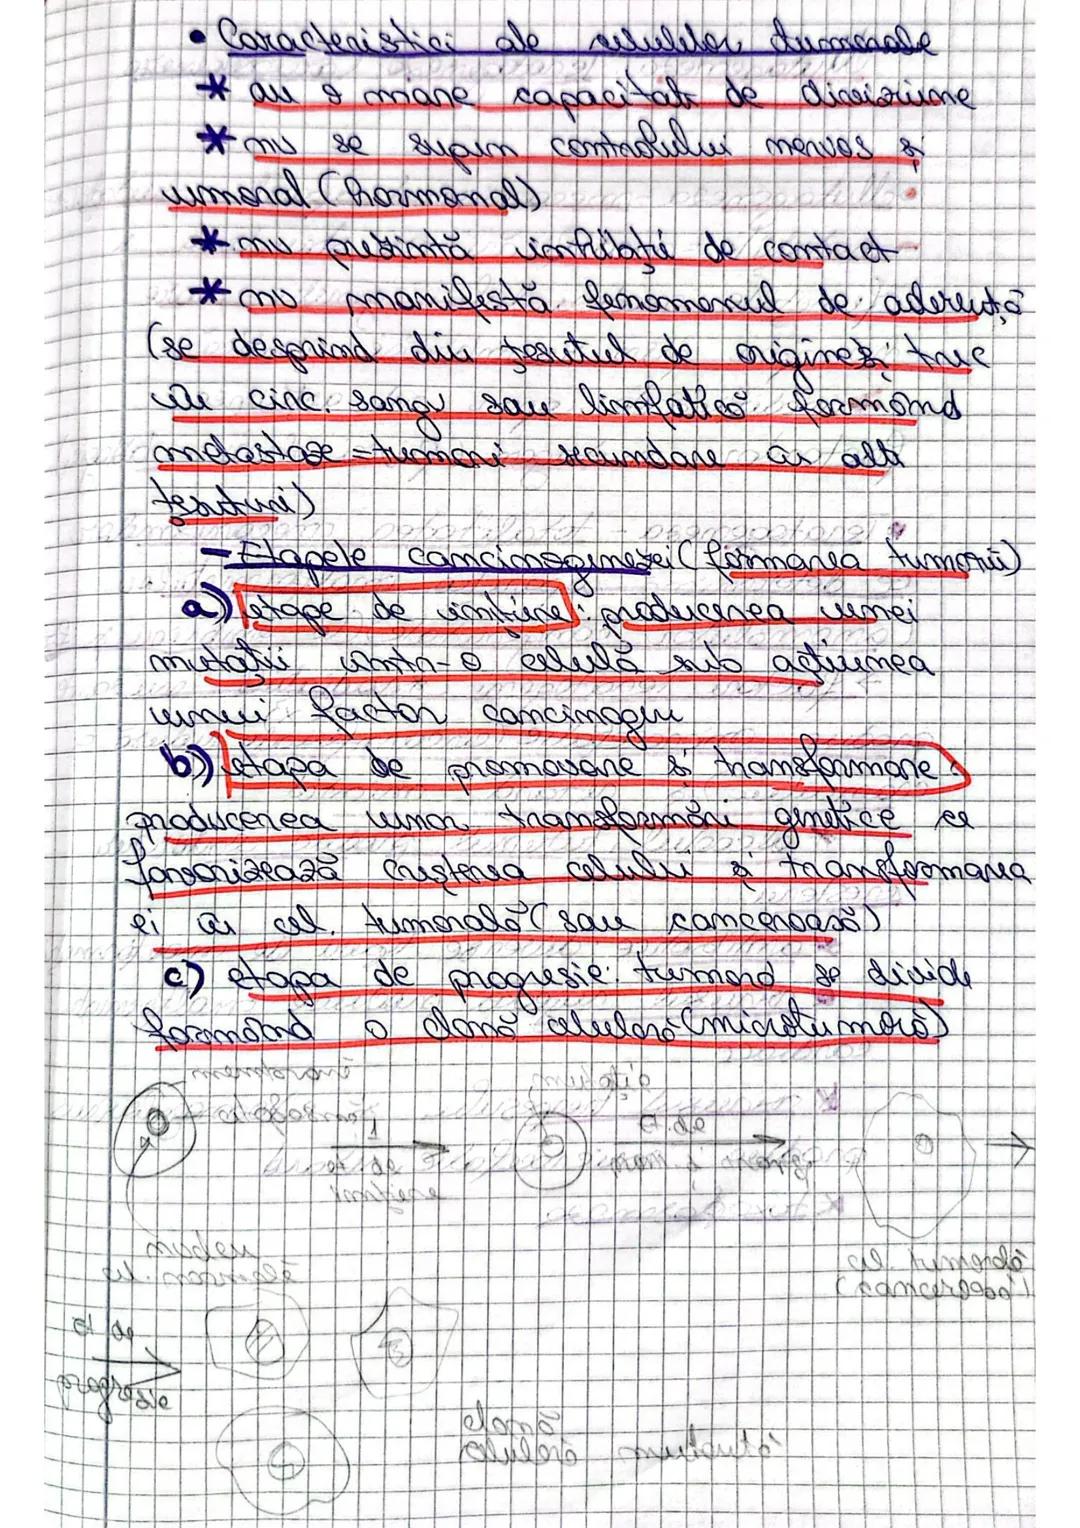 • Caracteristici ale celulelor tumorale
* au o mare capacitate de diviziune
* nu se supun controlului nervos și
umoral (hormonal)
* nu prezintă inhibiție de contact
* nu manifestă fenomenul de aderență
(se desprind din țesutul de origine și trec
în circ. sangv sau limfatică formând
metastaze = tumori secundare în alte
țesuturi)
- Etapele carcinogenezei (formarea tumorii)
a) etape de inițiere: producerea unei
mutații într-o celulă sub acțiunea
unui factor carcinogen
b) etapa de promovare și transformare:
producerea unor transformări genetice ce
favorizează creșterea celulei și transformarea
ei în cel. tumorală (sau canceroasă)
c) etapa de progresie: tumora se divide
formând o clonă celulară (microtumoră)
membrană mutație
citoplasmă
et. de
inițiere
et. de
prom. și transf.
nucleu
cel. normală
cel. tumorală
(canceroasă)
et de
progresie
clonă
celulară mutantă